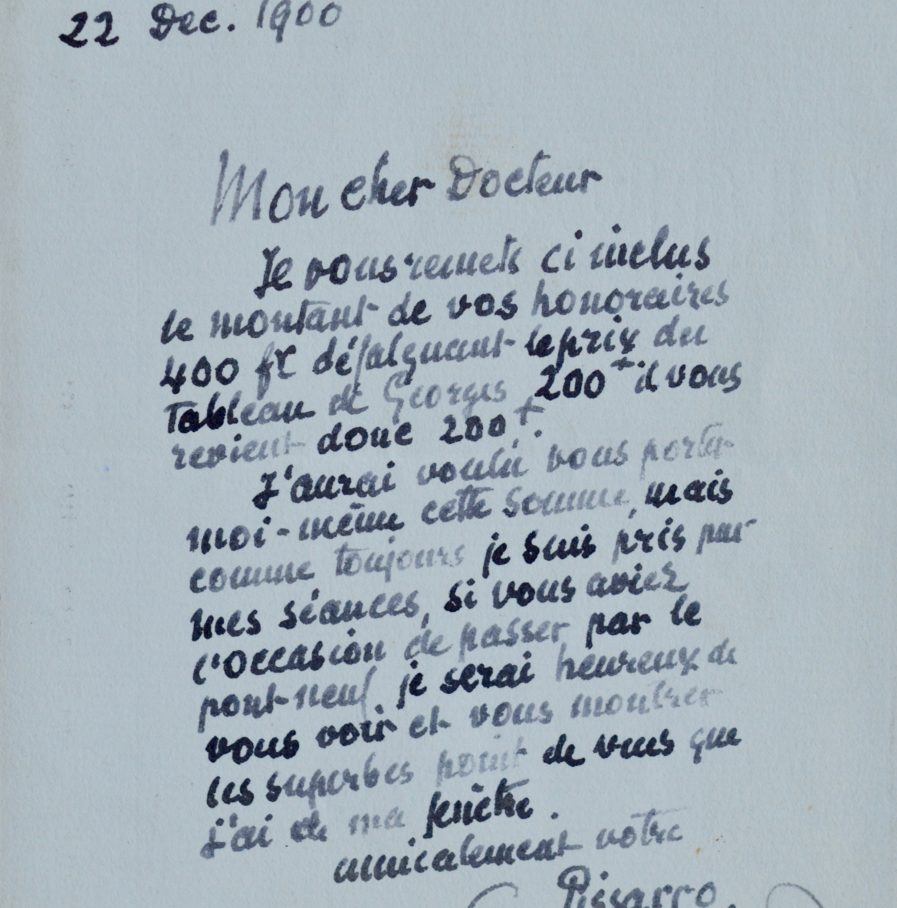 22 Dec. 1900
Mon cher Docteur
Je vous remets ci inclus
le montant de vos honoraires
400 fr défalquant le prix du
tableau de Georges 200+ il vous
revient donc 200+.
J'aurai voulu vous porter
moi-même cette somme, mais
comme toujours je suis pris par
mes séances, si vous aviez
l'occasion de passer par le
pont-neuf je serai heureux de
vous voir et vous montrer
les superbes point de vues que
j'ai de ma fenêtre.
amicalement votre
Pissarro.